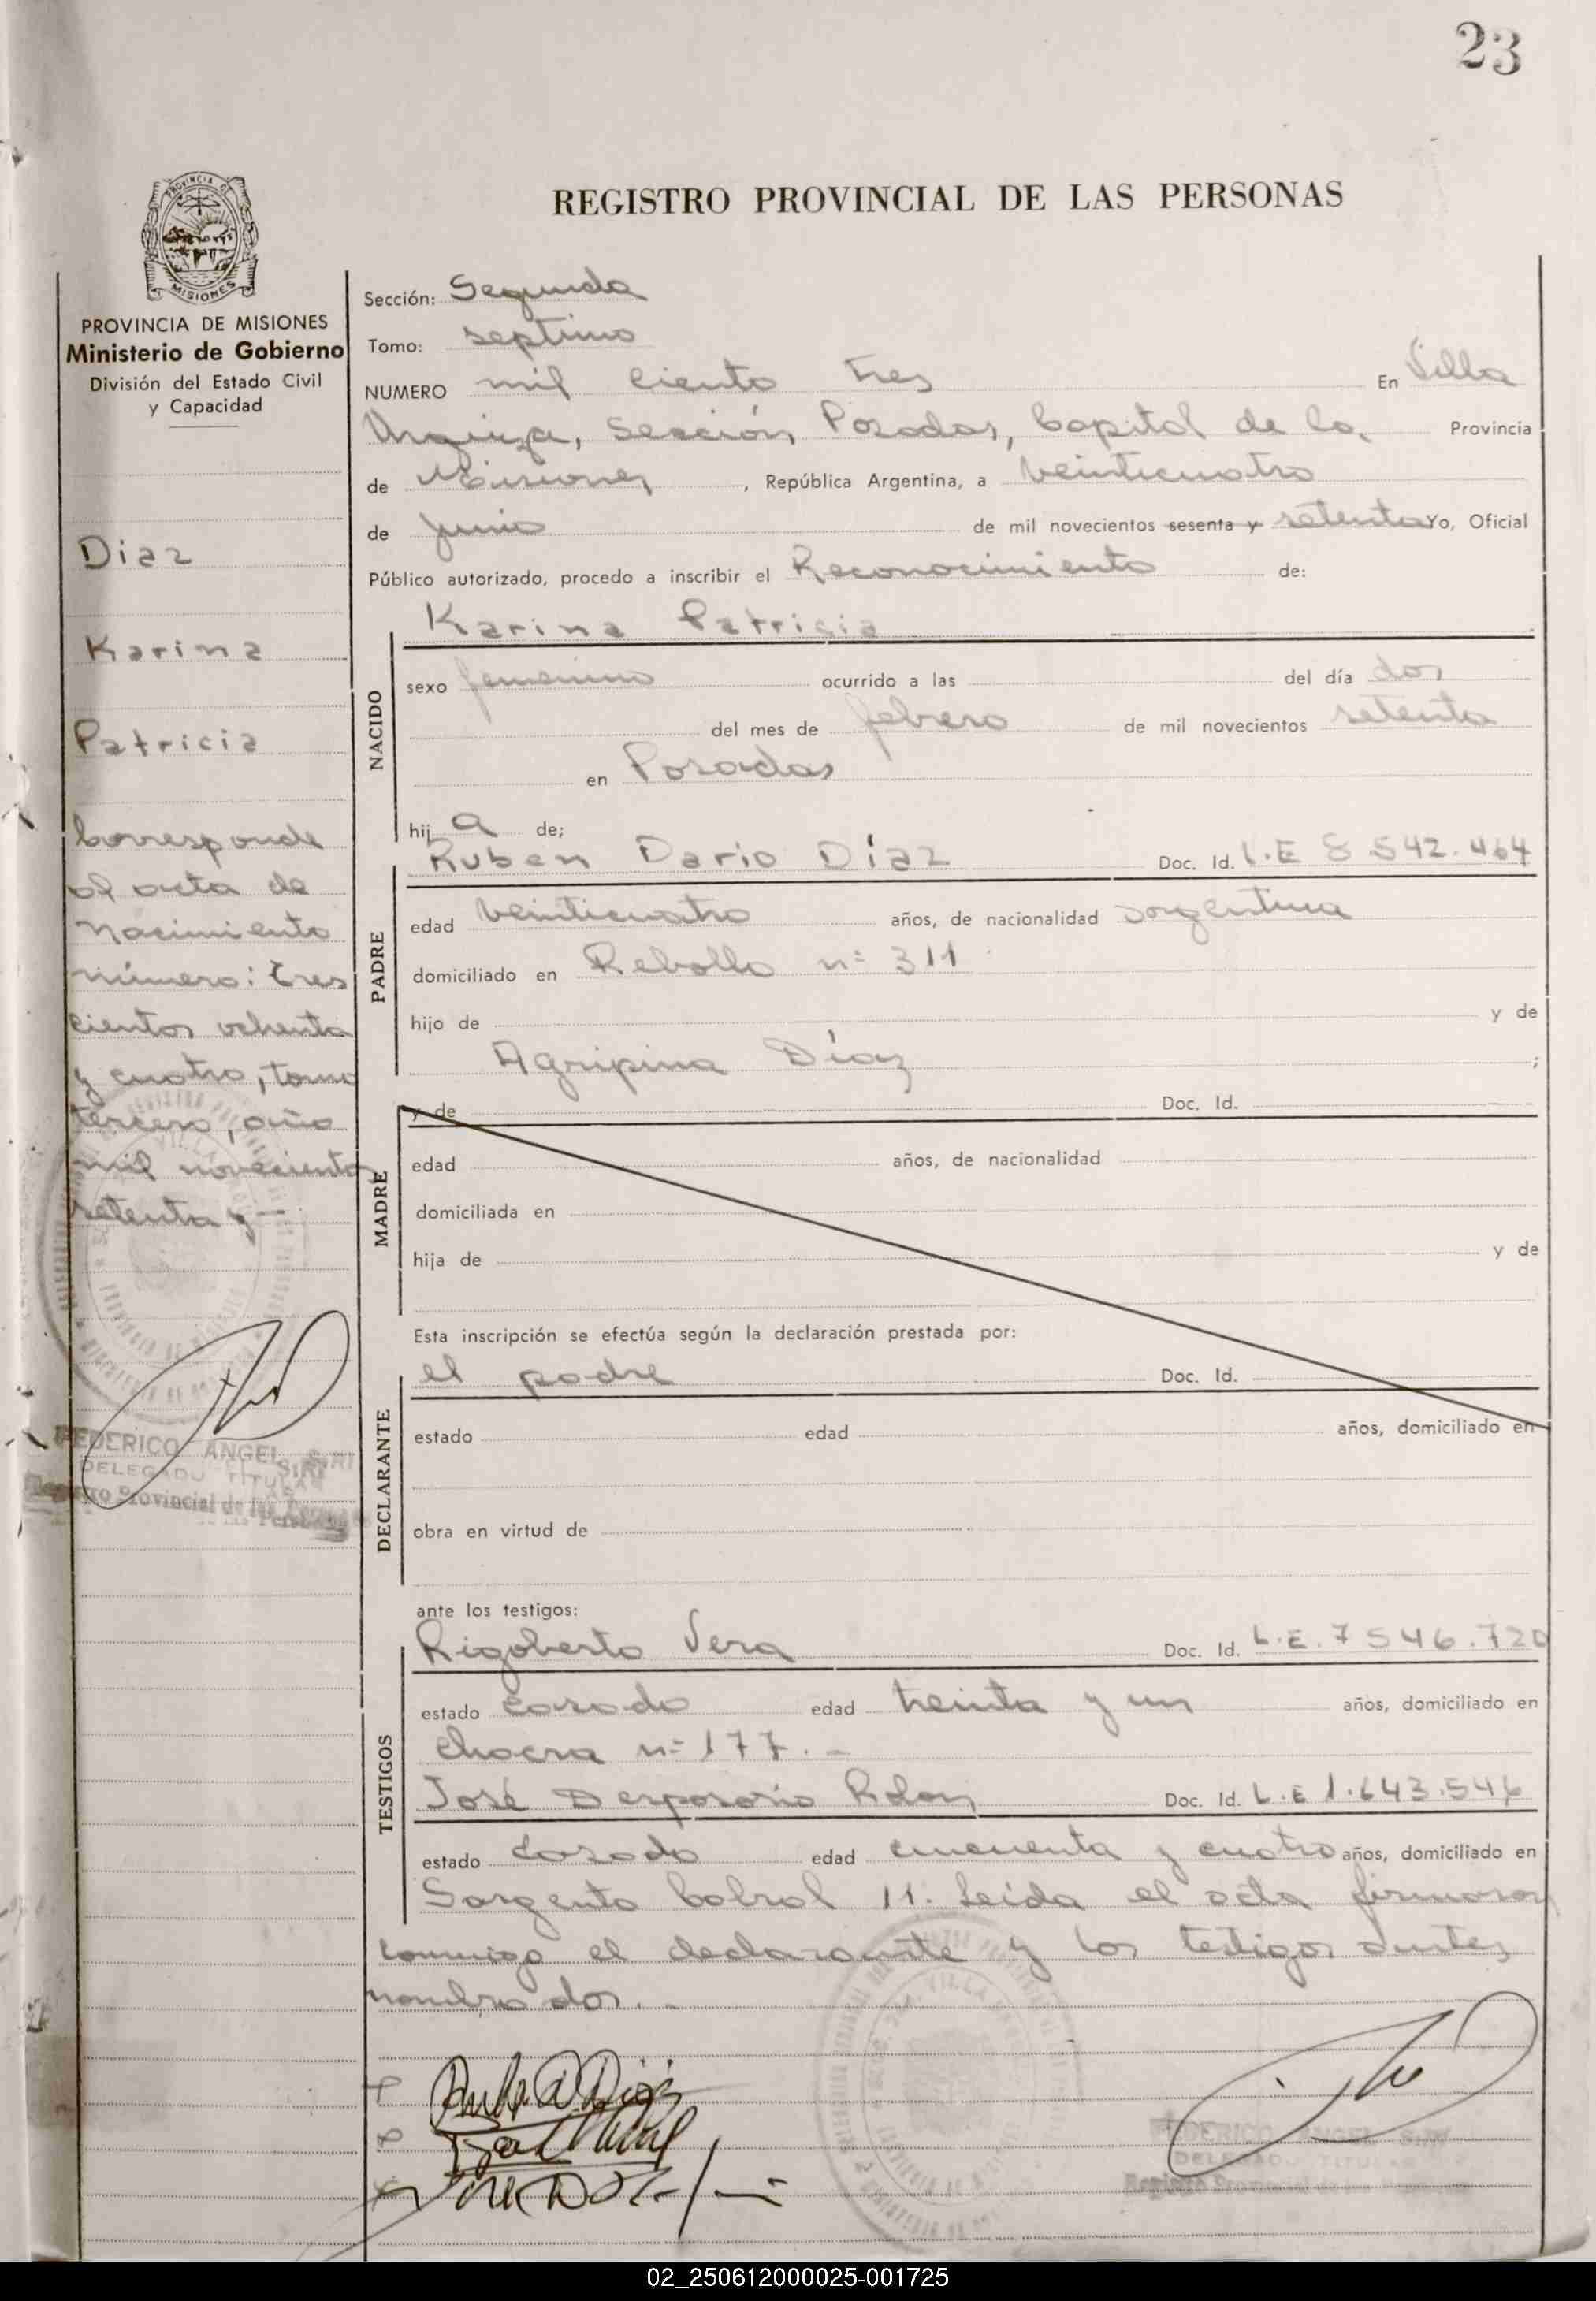 23
REGISTRO PROVINCIAL DE LAS PERSONAS
PROVINCIA DE
MISIONES
PROVINCIA DE MISIONES
Ministerio de Gobierno
División del Estado Civil
y Capacidad
Diaz
Karina
Patricia
Corresponde
al acta de
nacimiento
número: tres
cientos ochenta
y cuatro, tomo
tercero, año
mil novecientos
setenta y
FEDERICO ANGEL SIRI
DELEGADO TITULAR
Registro Provincial de las Personas
Sección: Segunda
Tomo: septimo
NUMERO mil ciento tres En Villa
Urquiza, Sección Posadas, Capital de la Provincia
de Misiones, República Argentina, a veinticuatro
de junio de mil novecientos sesenta y setenta Yo, Oficial
Público autorizado, procedo a inscribir el Reconocimiento de:
Karina Patricia
NACIDO
sexo femenino ocurrido a las del día dos
del mes de febrero de mil novecientos setenta
en Posadas
hij a de;
Ruben Dario Díaz Doc. Id. L.E 8.542.464
PADRE
edad veinticuatro años, de nacionalidad argentina
domiciliado en Rebollo nº 311
hijo de y de
Agripina Díaz ;
y de Doc. Id.
MADRE
edad años, de nacionalidad
domiciliada en
hija de y de
Esta inscripción se efectúa según la declaración prestada por:
el padre Doc. Id.
DECLARANTE
estado edad años, domiciliado en
obra en virtud de
ante los testigos:
Rigoberto Vera Doc. Id. L.E. 7546.720
TESTIGOS
estado casado edad treinta y un años, domiciliado en
chacra nº 177.-
José Desposorio Rolon Doc. Id. L.E 1.643.546
estado casado edad cincuenta y cuatro años, domiciliado en
Sargento Cabral 11. Leída el acta firmaron
conmigo el declarante y los testigos antes
nombrados.-
FEDERICO ANGEL SIRI
DELEGADO TITULAR
Registro Provincial de las Personas
02_250612000025-001725